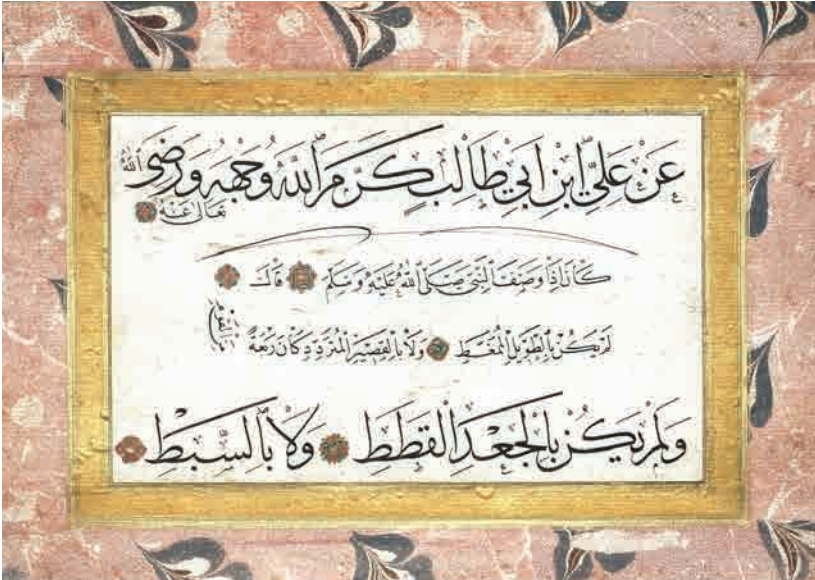 عَنْ عَلِيِّ ابْنِ اَبِي طَالِبٍ كَرَّمَ اللهُ وَجْهَهُ وَرَضِيَ اللهُ
تَعَالَى عَنْهُ
كَانَ اِذَا وَصَفَ النَّبِيَّ صَلَّى اللهُ عَلَيْهِ وَسَلَّمَ قَالَ
لَمْ يَكُنْ بِالطَّوِيلِ الْمُمَّغِطِ وَلَا بِالْقَصِيرِ الْمُتَرَدِّدِ كَانَ رَبْعَةً
وَلَمْ يَكُنْ بِالْجَعْدِ الْقَطَطِ وَلَا بِالسَّبِطِ